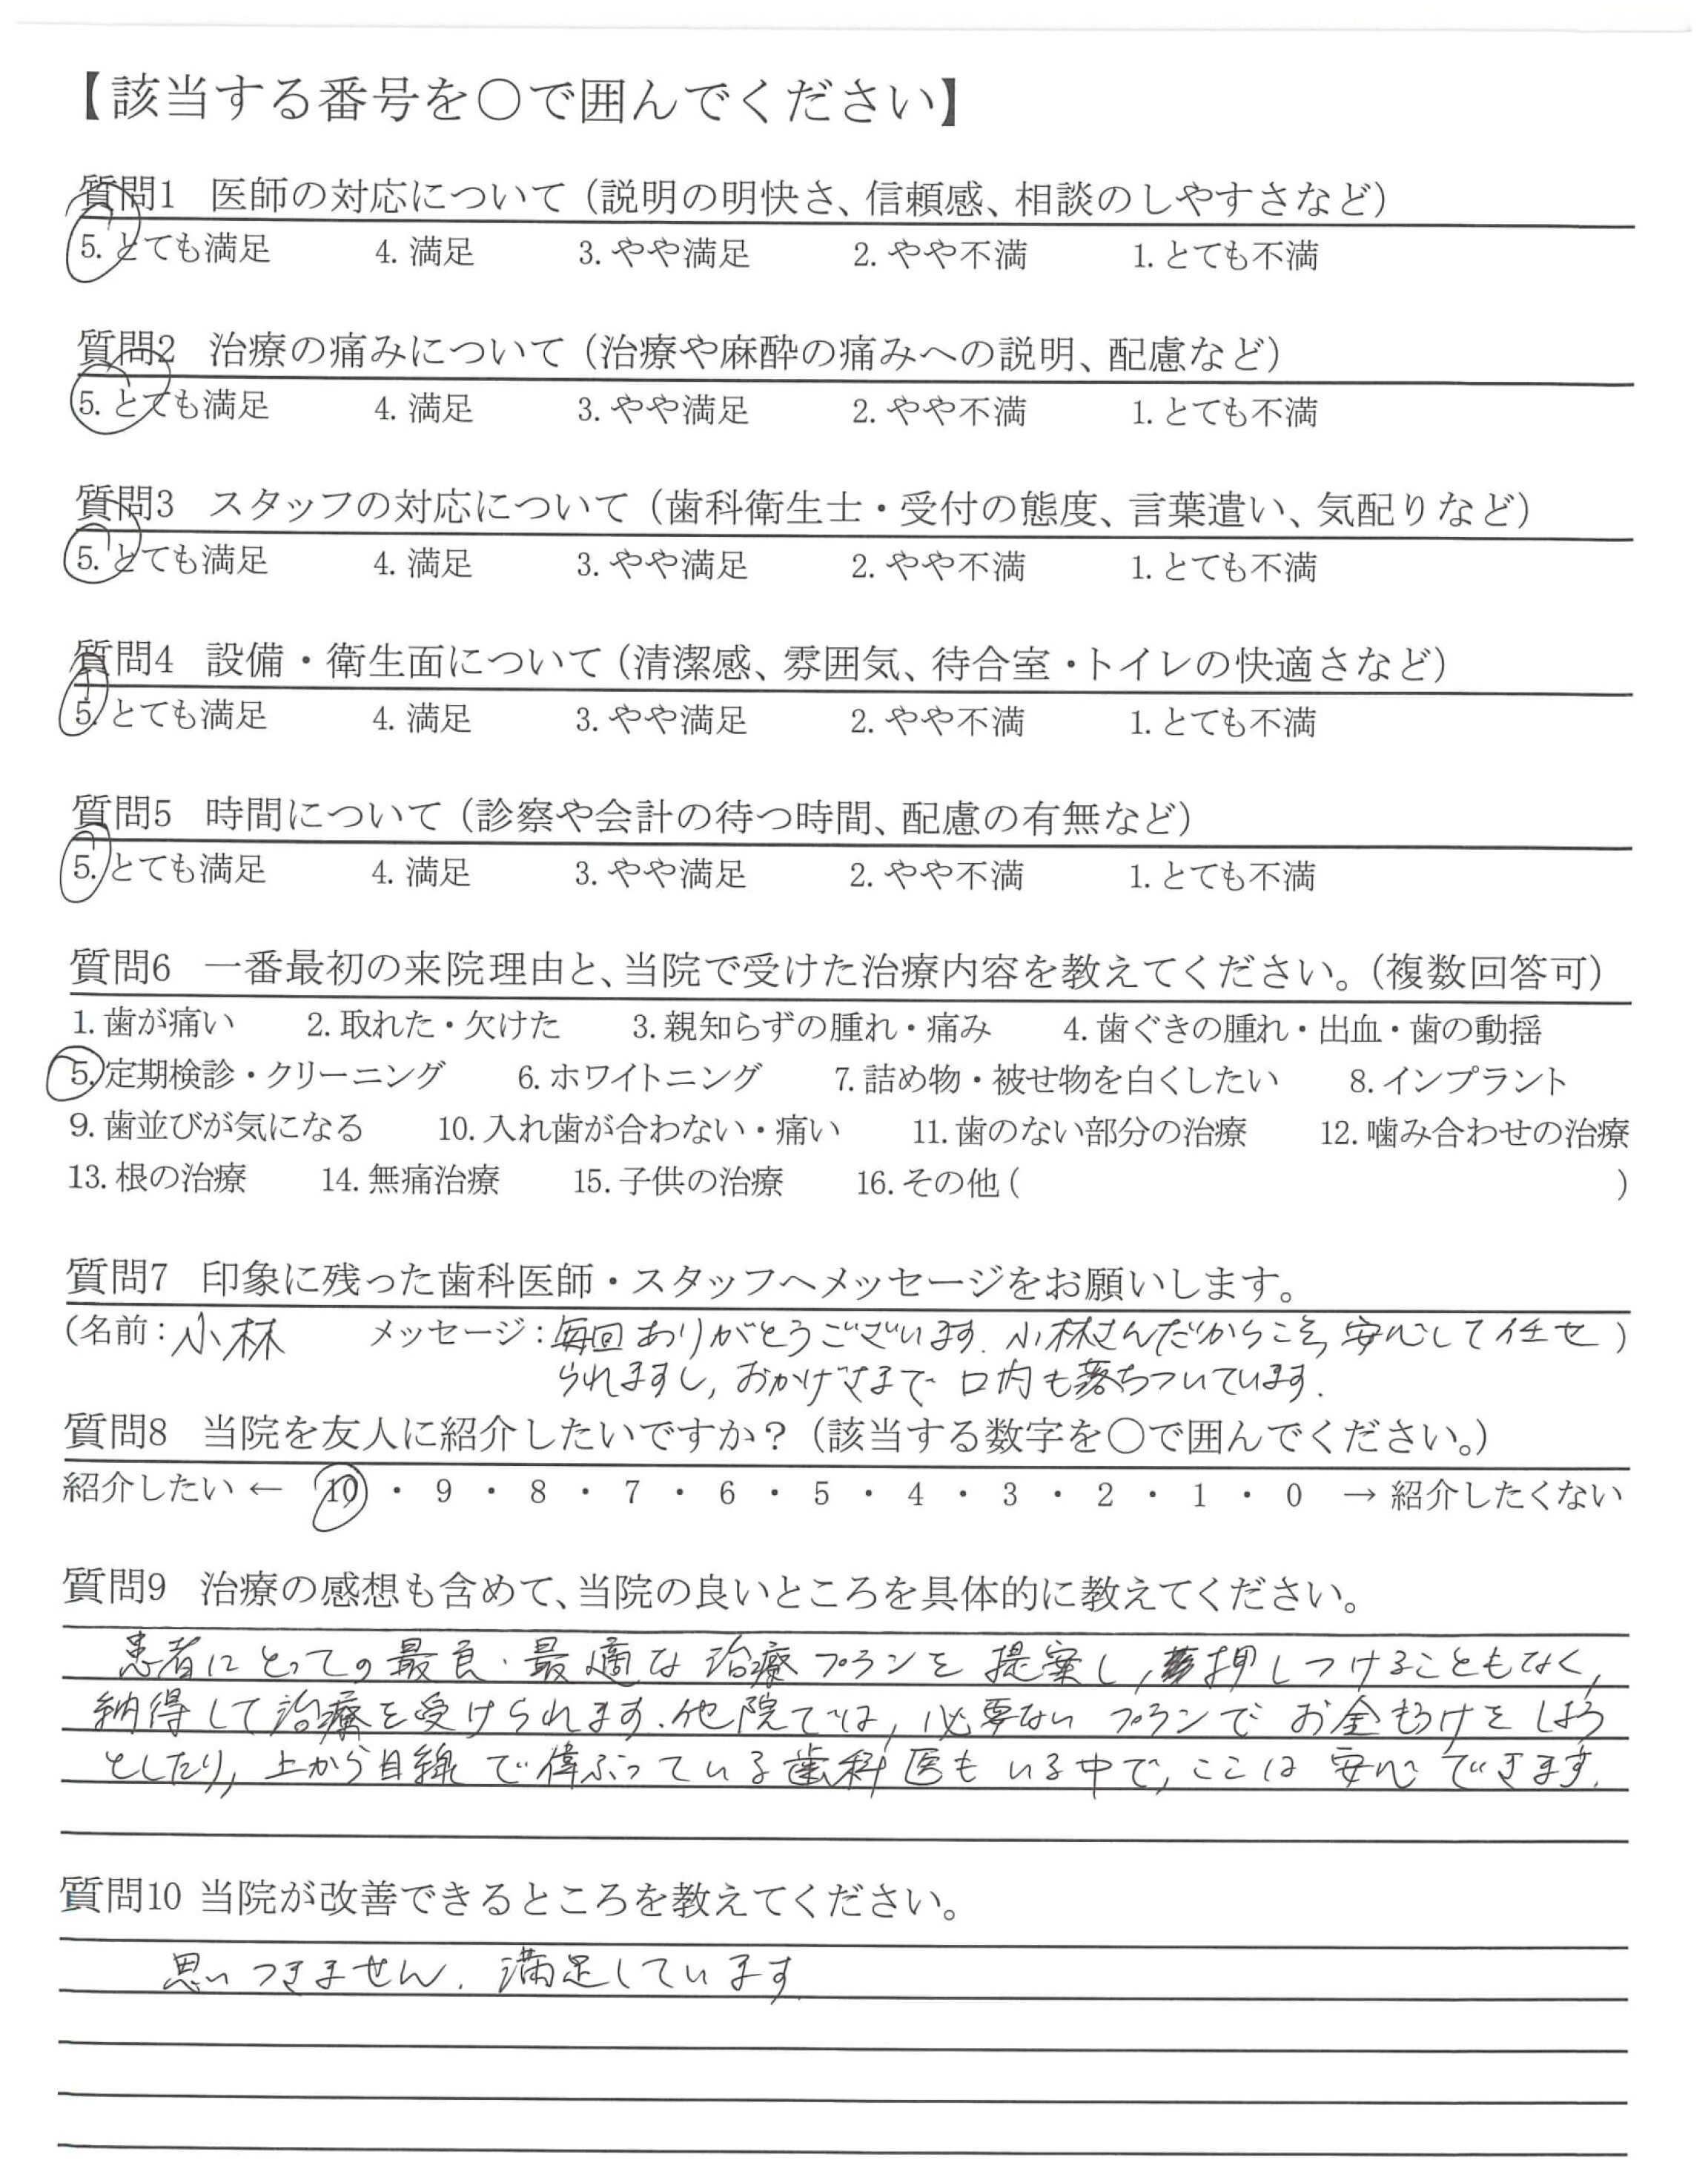 【該当する番号を〇で囲んでください】
質問1 医師の対応について（説明の明快さ、信頼感、相談のしやすさなど）
5. とても満足 4. 満足 3. やや満足 2. やや不満 1. とても不満
質問2 治療の痛みについて（治療や麻酔の痛みへの説明、配慮など）
5. とても満足 4. 満足 3. やや満足 2. やや不満 1. とても不満
質問3 スタッフの対応について（歯科衛生士・受付の態度、言葉遣い、気配りなど）
5. とても満足 4. 満足 3. やや満足 2. やや不満 1. とても不満
質問4 設備・衛生面について（清潔感、雰囲気、待合室・トイレの快適さなど）
5. とても満足 4. 満足 3. やや満足 2. やや不満 1. とても不満
質問5 時間について（診察や会計の待つ時間、配慮の有無など）
5. とても満足 4. 満足 3. やや満足 2. やや不満 1. とても不満
質問6 一番最初の来院理由と、当院で受けた治療内容を教えてください。（複数回答可）
1. 歯が痛い 2. 取れた・欠けた 3. 親知らずの腫れ・痛み 4. 歯ぐきの腫れ・出血・歯の動揺
5. 定期検診・クリーニング 6. ホワイトニング 7. 詰め物・被せ物を白くしたい 8. インプラント
9. 歯並びが気になる 10. 入れ歯が合わない・痛い 11. 歯のない部分の治療 12. 噛み合わせの治療
13. 根の治療 14. 無痛治療 15. 子供の治療 16. その他（ ）
質問7 印象に残った歯科医師・スタッフへメッセージをお願いします。
（名前：小林 メッセージ：毎回ありがとうございます. 小林さんだからこそ, 安心して任せ）
られますし, おかげさまで 口内も落ちついています.
質問8 当院を友人に紹介したいですか？（該当する数字を〇で囲んでください。）
紹介したい ← 10 ・ 9 ・ 8 ・ 7 ・ 6 ・ 5 ・ 4 ・ 3 ・ 2 ・ 1 ・ 0 → 紹介したくない
質問9 治療の感想も含めて、当院の良いところを具体的に教えてください。
患者にとっての最良・最適な治療プランを提案し, 押しつけることもなく,
納得して治療を受けられます. 他院では, 必要ないプランでお金もうけをしよう
としたり, 上から目線で偉ぶっている歯科医もいる中で, ここは安心できます.
質問10 当院が改善できるところを教えてください。
思いつきません. 満足しています.